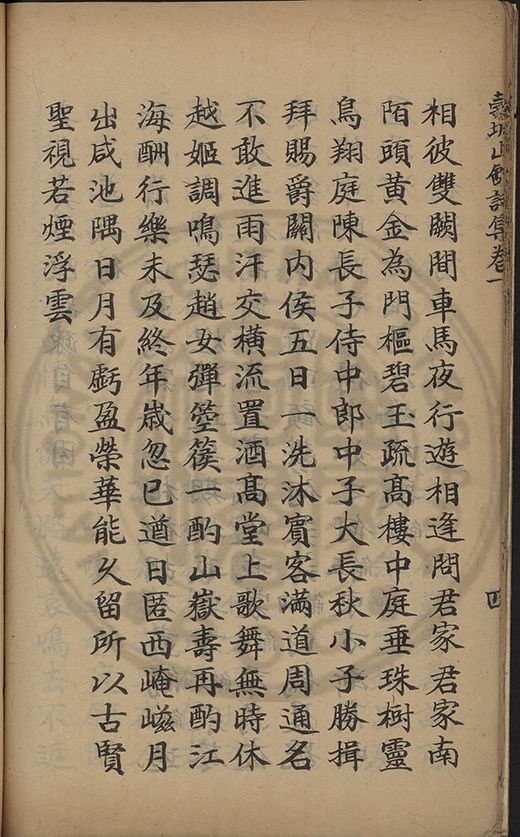 山詩集卷一
四
相彼雙闕間車馬夜行遊相逢問君家君家南
陌頭黃金為門樞碧玉疏髙樓中庭垂珠樹靈
鳥翔庭陳長子侍中郎中子大長秋小子勝揖
拜賜爵關内侯五日一洗沐賓客滿道周通名
不敢進雨汗交橫流置酒髙堂上歌舞無時休
越姬調鳴瑟趙女彈箜篌一酌山嶽壽再酌江
海酬行樂未及終年歲忽已遒日匿西崦嵫月
出咸池隅日月有虧盈榮華能久留所以古賢
聖視若煙浮雲